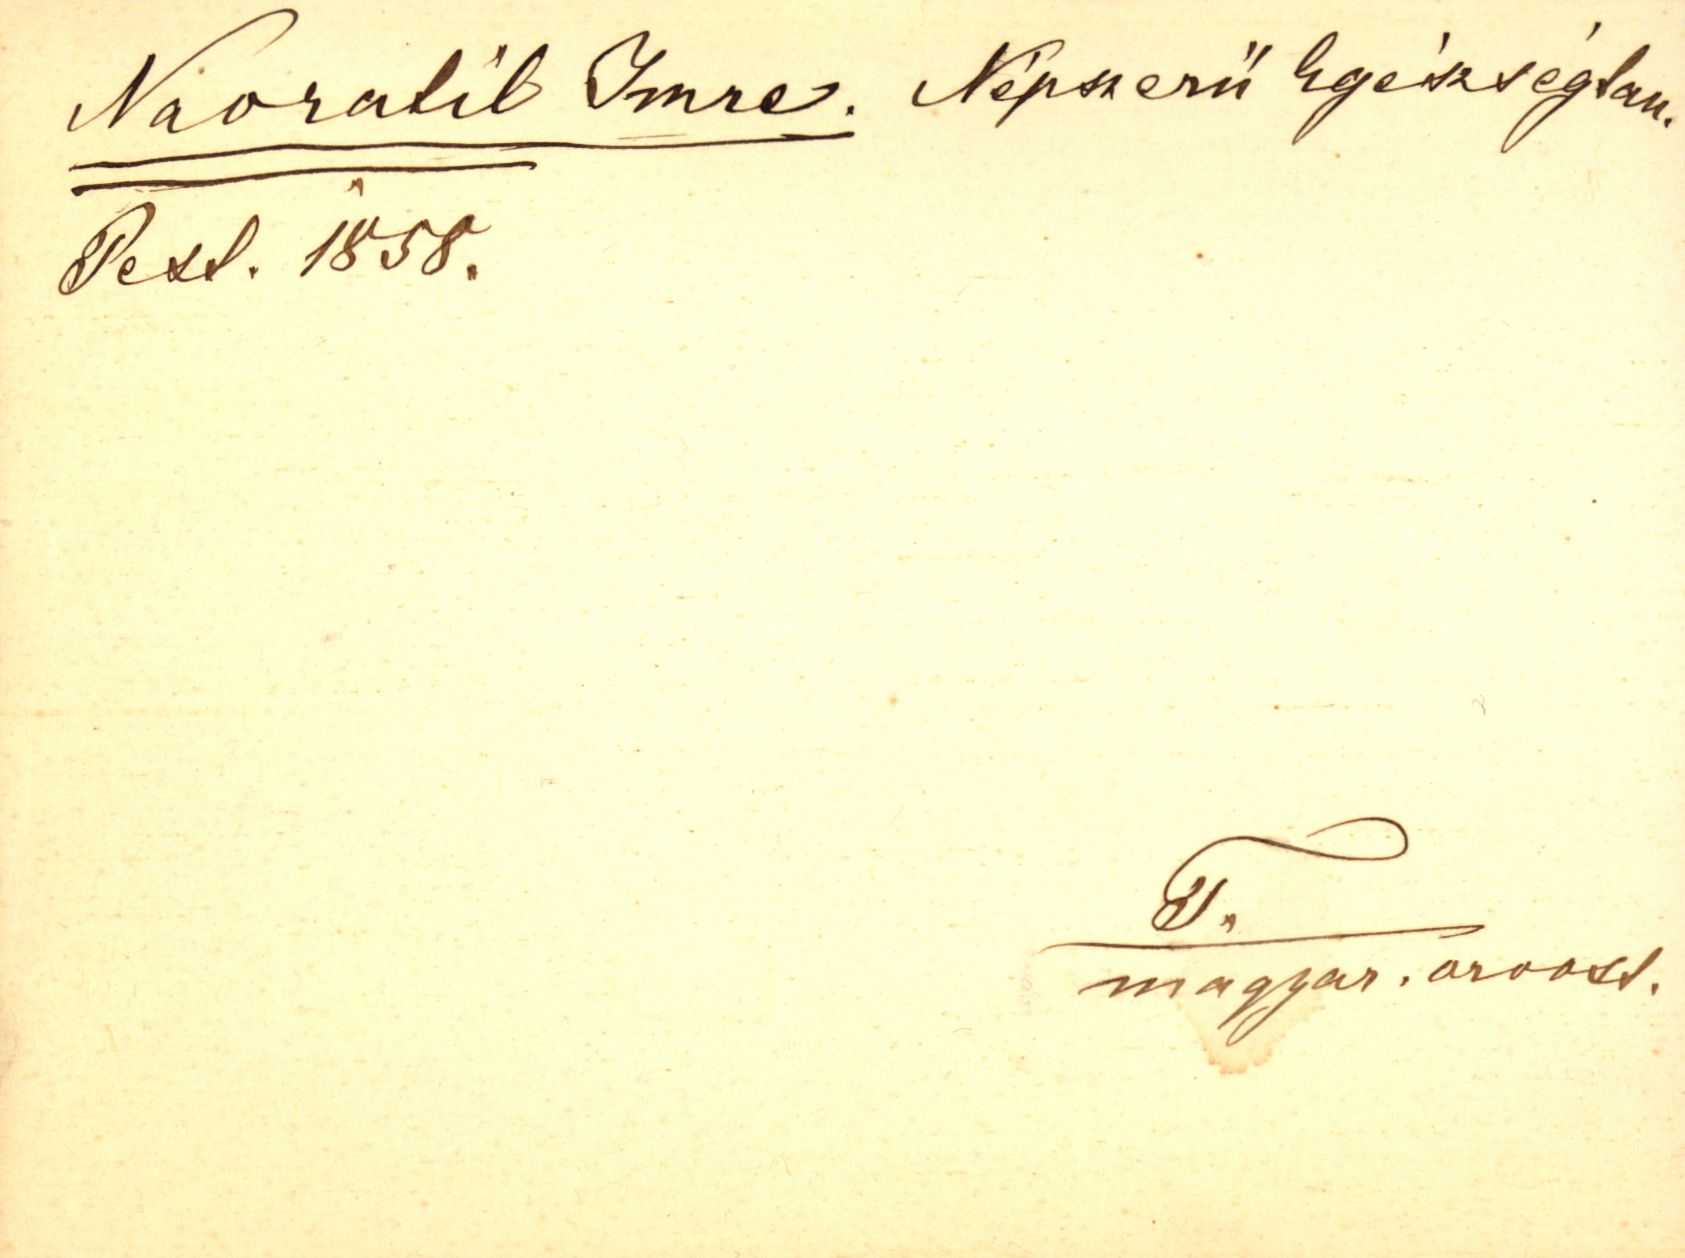 Navratil Imre. Népszerű Egészségtan.
Pest. 1858.
T.
magyar. orvost.